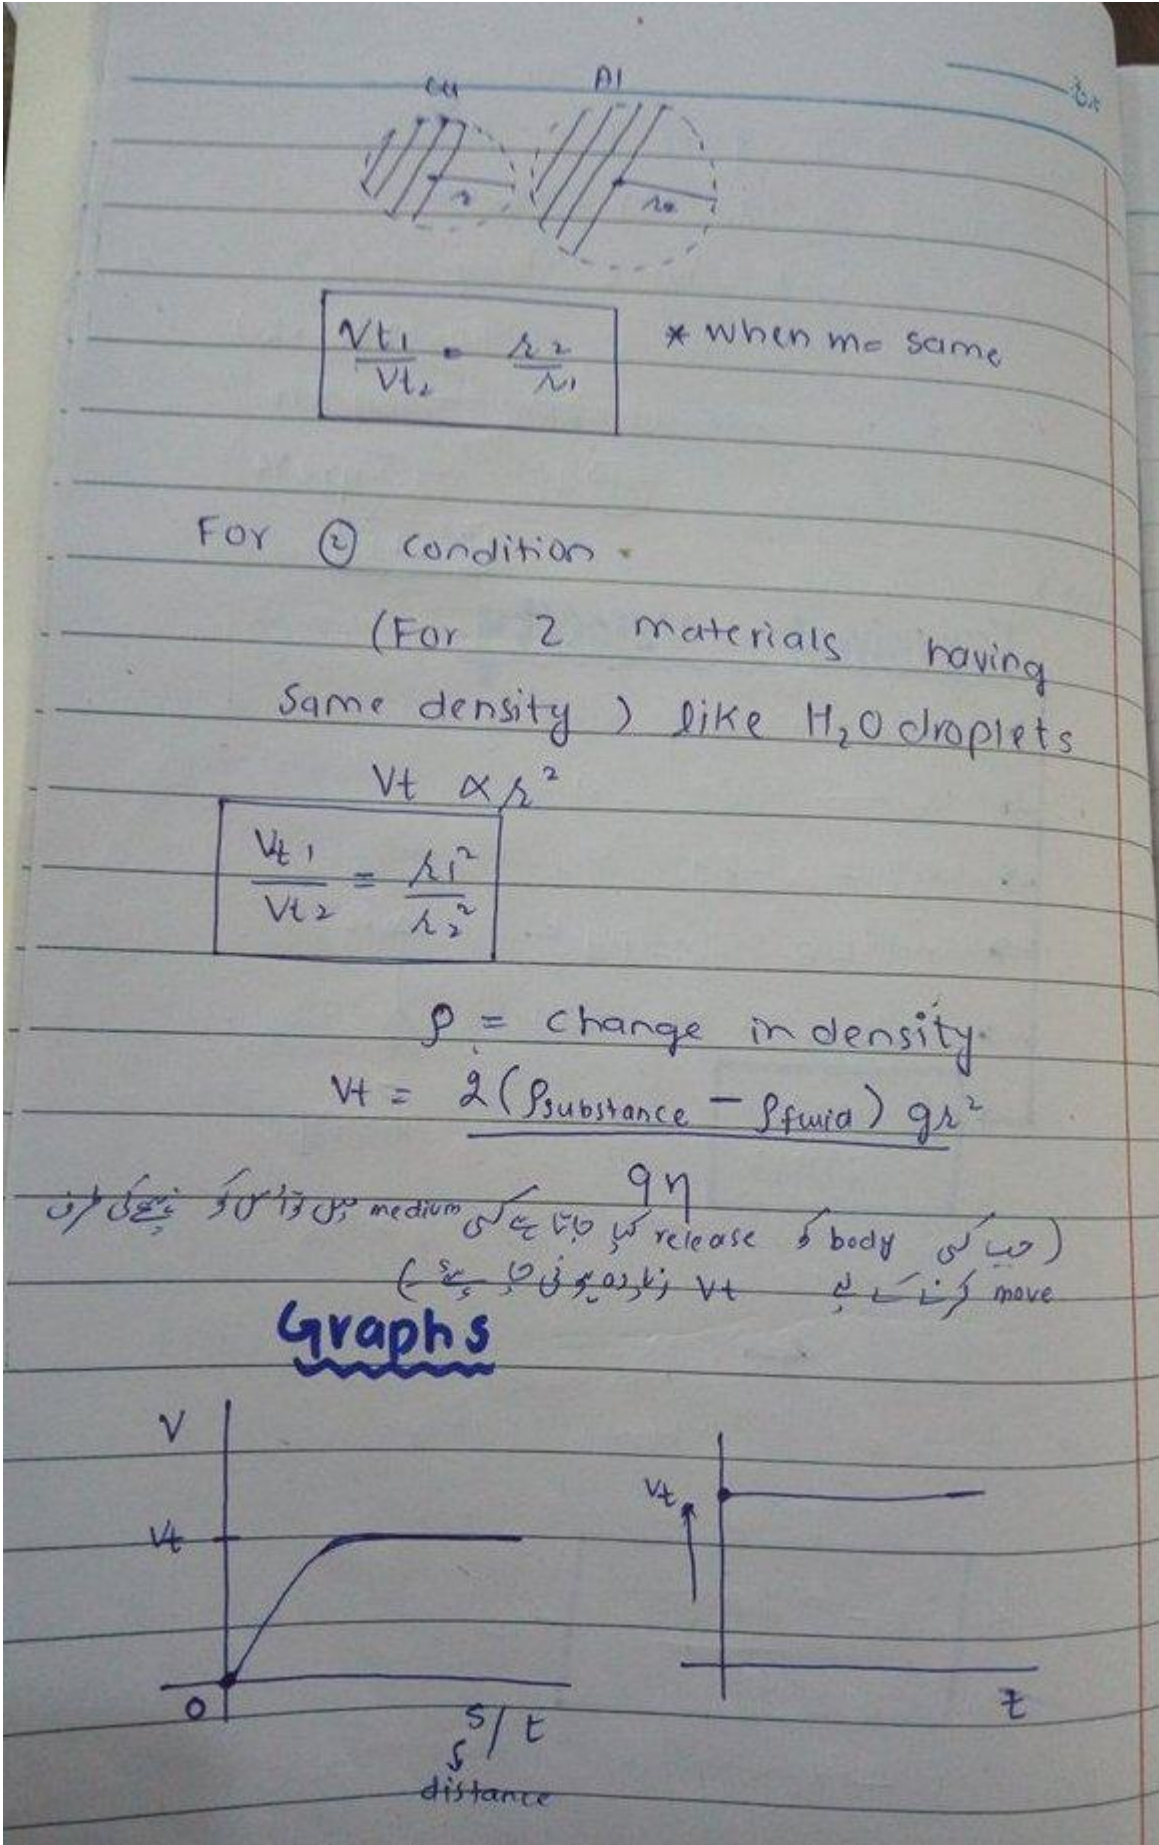 Cu Al
r r2
Vt1 / Vt2 = r2 / r1 * when m= same
For ② condition.
(For 2 materials having
Same density) like H₂O droplets
Vt ∝ r²
Vt1 / Vt2 = r1² / r2²
ρ = change in density.
Vt = 2(ρsubstance - ρfluid) gr² / 9η
(جب کسی body کو release کیا جاتا ہے کسی medium میں تو اس کو نیچے کی طرف
move کرنے کے لیے Vt زیادہ ہونی چاہیے)
Graphs
V
Vt
Vt
0
S / t
t
distance